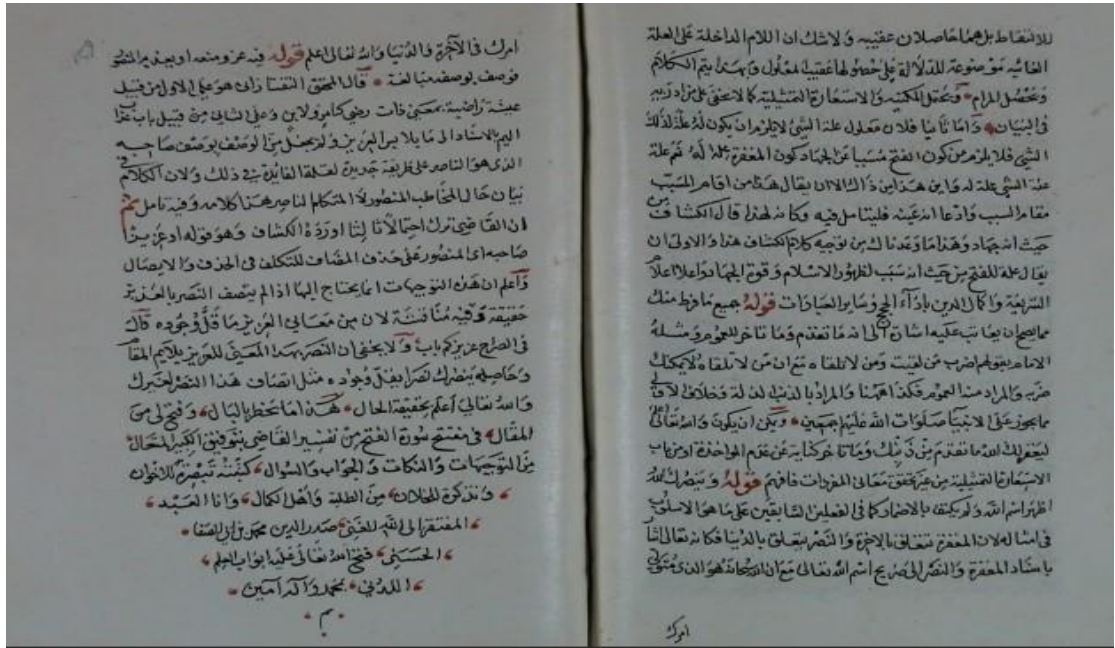 للانتفاط بل هما حاصلان عقيبه ولا شك ان اللام الداخلة على العلة
الغائيه موضوعة للدلالة على حصولها عقيب المعلول وبهذا يتم الكلام
وتحصل المرام ويحتمل المكنيه والاستعارة التمثيلية كما لا يخفى على من له
فى البيان واما ثانيا فلان معلول علة الشئ لا يلزم ان يكون له علة لذلك
الشئ فلا يلزم من كون الفتح مسببا عن الجهاد كون المغفرة علة له ثم علة
علة الشئ علة له واين هذا من ذاك الا ان يقال هذا من اقامة المسبب
مقام السبب وادعا انه عينه فليتامل فيه وكانه لهذا قال الكشاف من
حيث انه جهاد وهذا ما وعدناك من توجيه كلام الكشاف هذا والاولى ان
يقال علة للفتح من حيث انه سبب لظهور الاسلام وقوة الجهاد واعلا اعلام
الشريعة واكمال الدين باداء الحج وساير العبادات قوله جميع ما فرط منك
مما يصح ان يعاتب عليه اشارة الى انه ما تقدم وما تاخر للعموم ومثله
الامام بقولهم اضرب من لقيت ومن لا تلقاه مع ان من لا تلقاه لا يمكنك
ضربه والمراد منه العموم فكذا ههنا والمراد بالذنب
مما يجوز على الانبيا صلوات الله عليهم اجمعين ويمكن ان يكون والله تعالى
ليغفر لك الله ما تقدم من ذنبك وما تاخر كناية عن عدم المواخذة او من باب
الاستعارة التمثيلية من غير تحقق معانى المفردات فافهم قوله وينصرك الله
اظهر اسم الله ولم يكتف بالاضمار كما فى الفعلين السابقين على ما هو الاسلوب
فى امثاله لان المغفرة تتعلق بالاخرة والنصر يتعلق بالدنيا فكانه تعالى اشار
باسناد المغفرة والنصر الى صريح اسم الله تعالى مع ان الله سبحانه هو الذى يتولى
امرك
امرك فى الآخرة والدنيا والله تعالى اعلم قوله فيه عز ومنعه او يعز به المنصور
فوصف بوصفه مبالغة قال المحقق التفتازانى هو على الاول من قبيل
عيشة راضية بمعنى ذات رضى كلابن وعلى الثانى من قبيل باب عذاب
اليم بالاسناد الى ما يلابس العزيز ولم يجعل من الوصف بوصف صاحبه
الذى هو الناصر على طريقة جديرة لعلة الفايدة فى ذلك ولان الكلام فى
بيان حال المخاطب المنصور لا المتكلم الناصر هذا كلامه وفيه تامل ثم
ان القاضى ترك احتمالا ثالثا اورده الكشاف وهو قوله او عزيزا
صاحبه اى المنصور على حذف المضاف للتكلف فى الحذف والايصال
واعلم ان هذه التوجيهات انما يحتاج اليها اذا لم يتصف النصر بالعزيز
حقيقة وفيه مناقشة لان من معانى العزيز ما قل وجوده قال
فى الصراح عزيز كم ياب ولا يخفى ان النصر بهذا المعنى للعزيز يلايم المقام
وحاصله ينصرك نصرا يقل وجود مثل اتصاف هذا النصر لغيرك
والله تعالى اعلم بحقيقة الحال هذا ما خطر بالبال وفتح لى من
المقال فى مفتتح سورة الفتح من تفسير القاضى بتوفيق الكبير المتعال
من التوجيهات والنكات والجواب والسوال كتبته تبصرة للاخوان
وتذكرة للخلان من الطلبة واهل الكمال وانا العبد
المفتقر الى الله الغنى صدر الدين محمد بن ابى الصفا
الحسينى فتح الله تعالى عليه ابواب العلم
اللدنى بمحمد وآله آمين
م